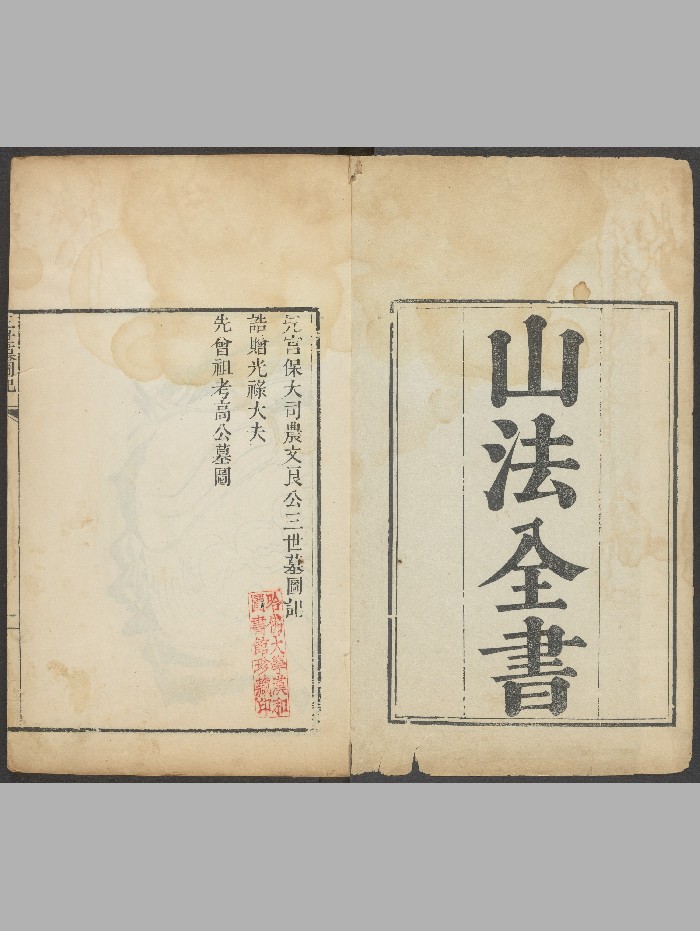 山法全書
先宮保大司農文良公三世墓圖記
誥贈光祿大夫
先曾祖考高公墓圖
哈佛大學漢和
圖書館珍藏印
三世墓圖記